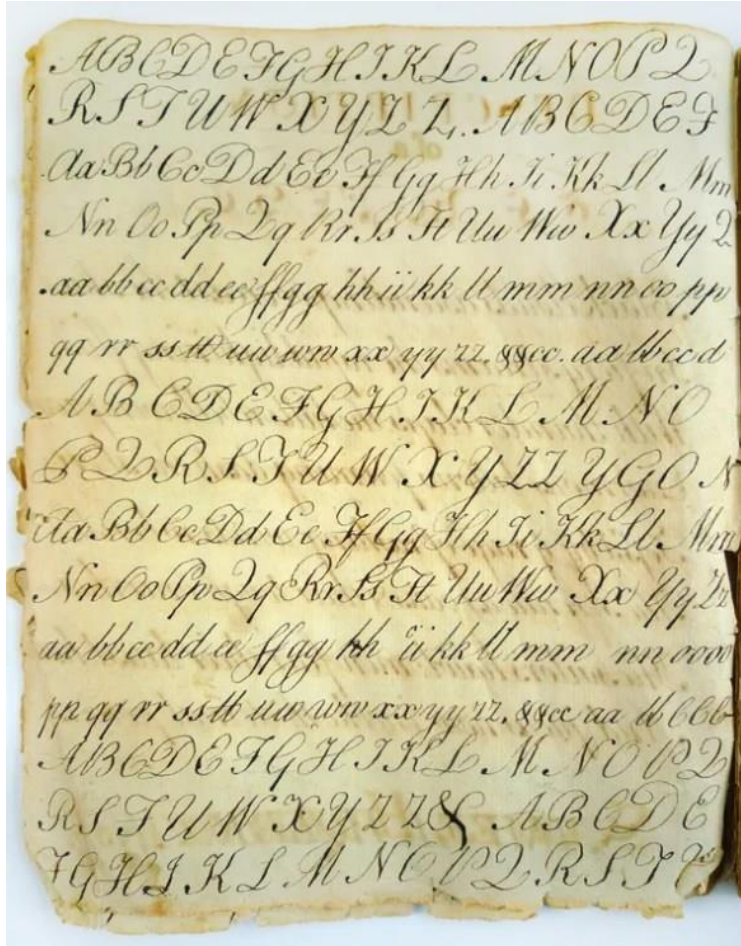 A B C D E F G H I K L M N O P Q
R S T U W X Y Z Z. A B C D E F
Aa Bb Cc Dd Ee Ff Gg Hh Ii Kk Ll Mm
Nn Oo Pp Qq Rr Ss Tt Uu Ww Xx Yy Z
aa bb cc dd ee ff gg hh ii kk ll mm nn oo pp
qq rr ss tt uu ww xx yy zz. &&cc. aa bb cc d
A B C D E F G H I K L M N O
P Q R S T U W X Y Z Z Y G O N
Aa Bb Cc Dd Ee Ff Gg Hh Ii Kk Ll Mm
Nn Oo Pp Qq Rr Ss Tt Uu Ww Xx Yy Zz
aa bb cc dd ee ff gg hh ii kk ll mm nn oooo
pp qq rr ss tt uu ww xx yy zz. &&cc aa bb bbb
A B C D E F G H I K L M N O P Q
R S T U W X Y Z Z & A B C D E
F G H I K L M N O P Q R S T